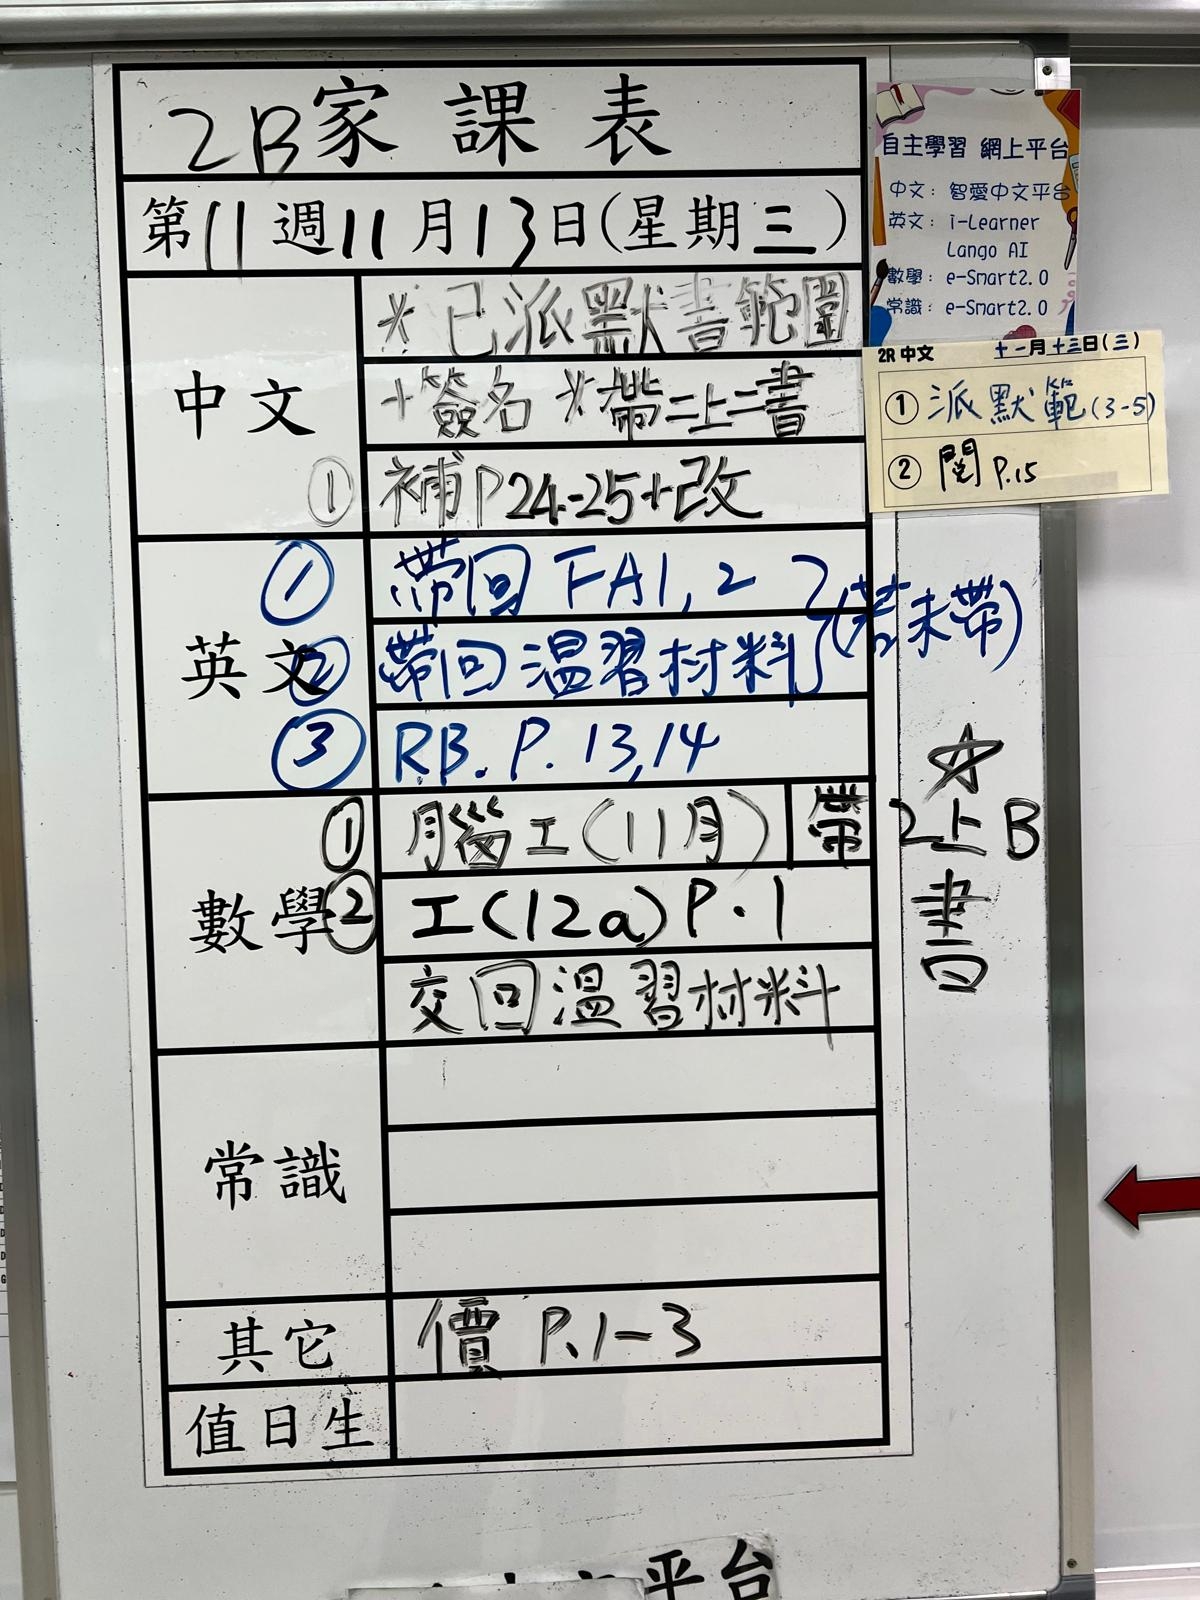 2B家課表
第11週11月13日(星期三)
中文
*已派默書範圍
+簽名 *帶二上二書
① 補P24-25+改
英文
① 帶回 FA1, 2
② 帶回溫習材料
(若未帶)
③ R.B. P. 13, 14
數學
① 腦工(11月) 帶2上B書
☆
② 工(12a) P.1
交回溫習材料
常識
其它
價 P.1-3
值日生
自主學習 網上平台
中文：智愛中文平台
英文：i-Learner
Lango AI
數學：e-Smart2.0
常識：e-Smart2.0
2R 中文 十一月十三日(三)
① 派默範(3-5)
② 閱 P.15
平台